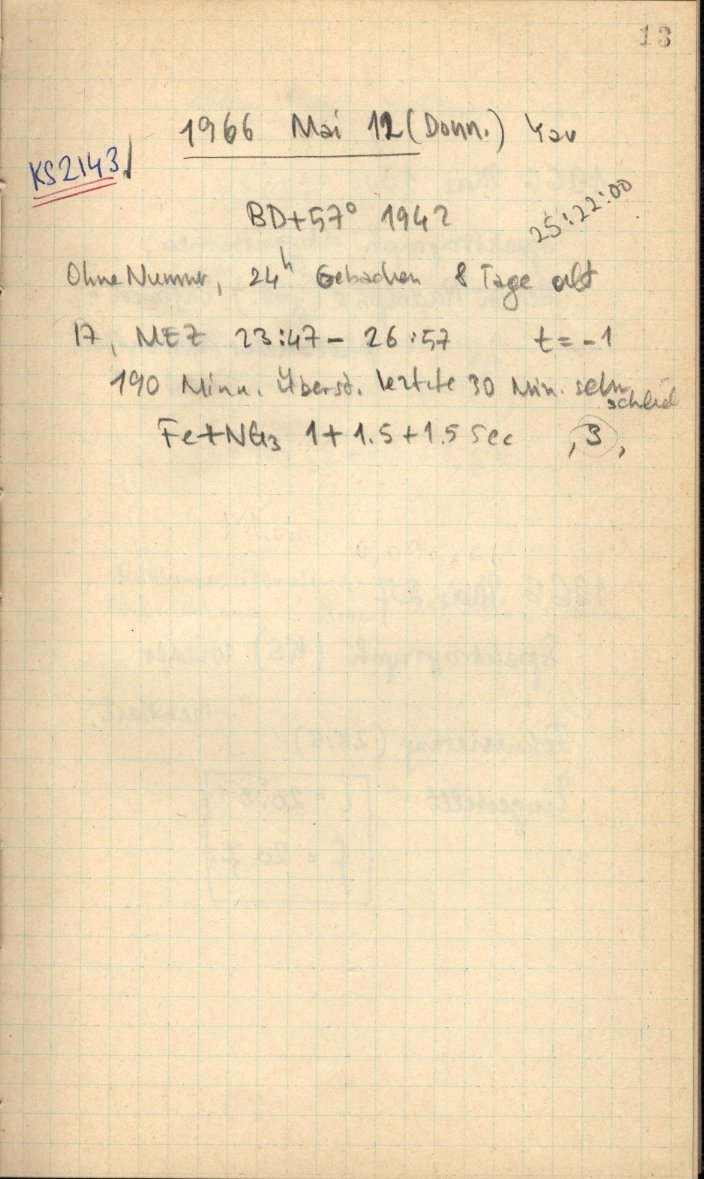 13
1966 Mai 12 (Donn.)
KS2143
BD+57° 1942
25:22:00
Ohne Nummer, 24h Gebacken 8 Tage alt
17, MEZ 23:47 - 26:57 t = -1
190 Minn. Überst. leztzte 30 Min. sehr
schlecht
Fe+NG3 1+1.5+1.5 sec , 3 ,